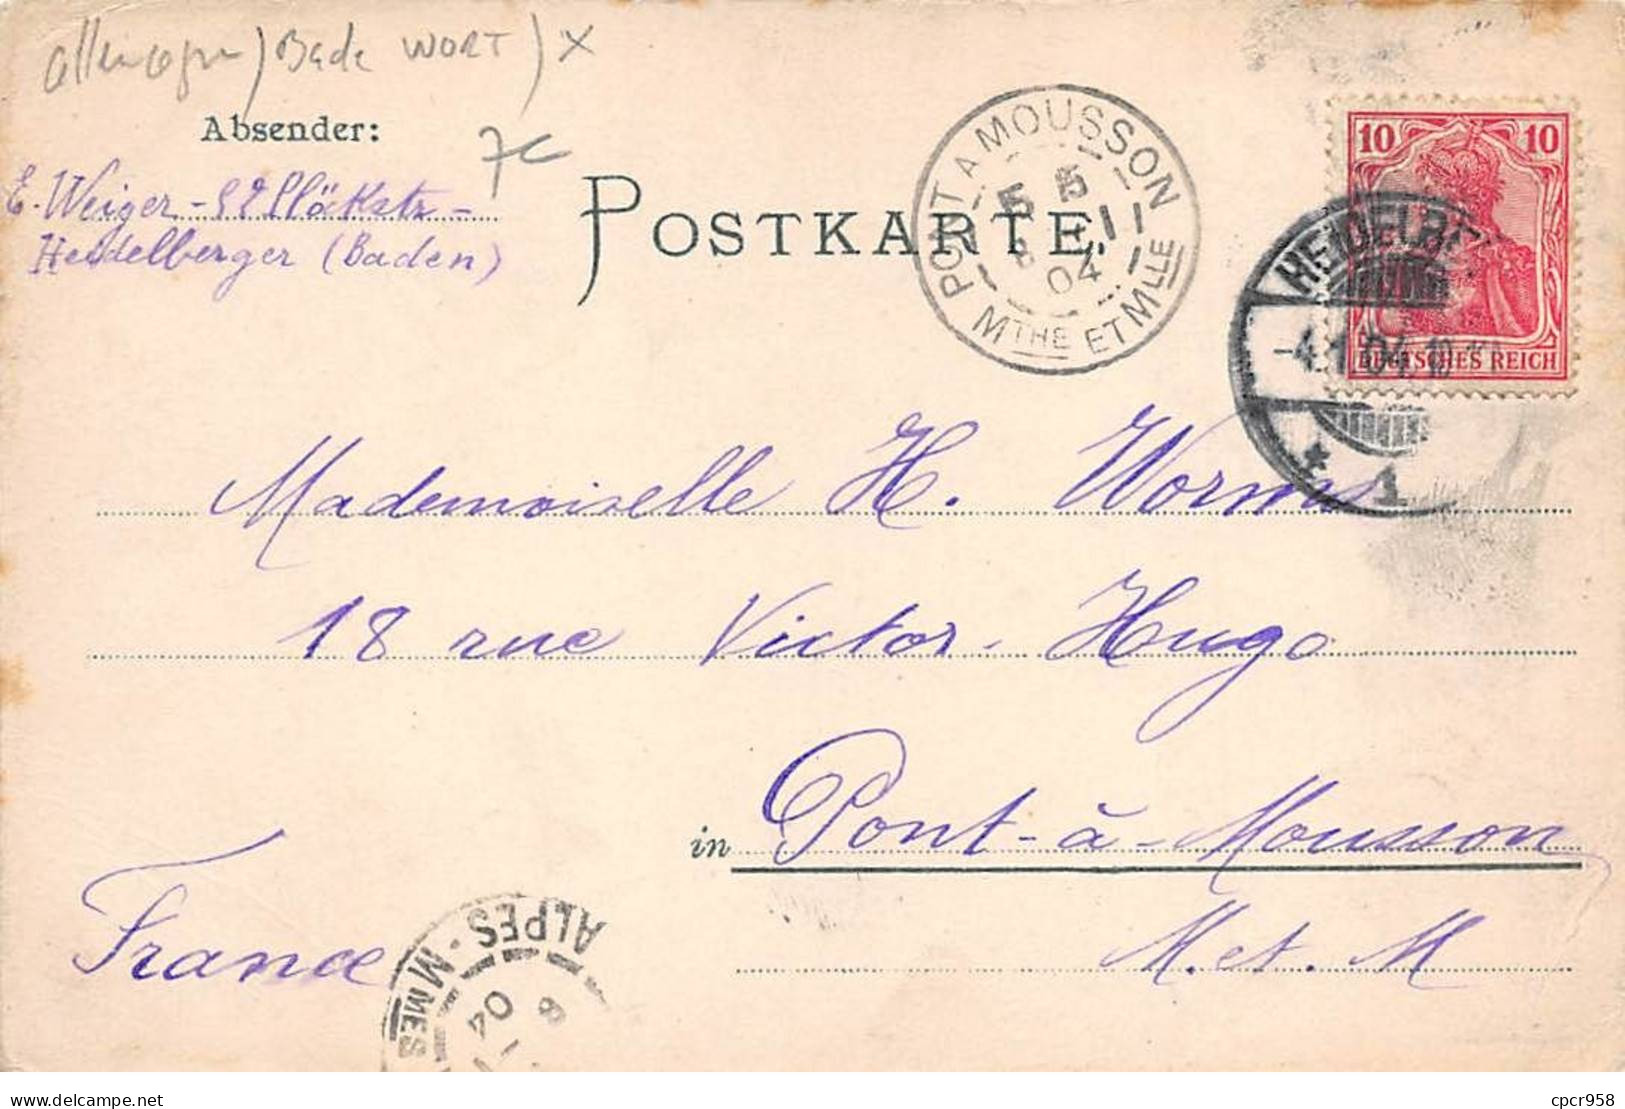 Allemagne) Bade WORT) X
Absender:
7c
E. Weiger - Plöckstr -
Heidelberger (Baden)
POSTKARTE.
PONT A MOUSSON
5
04
MTHE ET MLLE
10 10
DEUTSCHES REICH
HEIDELBE
-4.1.04. 10
* 1
Mademoiselle H. Worms
18 rue Victor-Hugo
in Pont-à-Mousson
France
M. et. M
ALPES-MMES
6
04
cpcr958